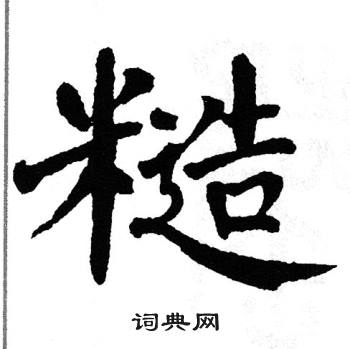 糙
词典网